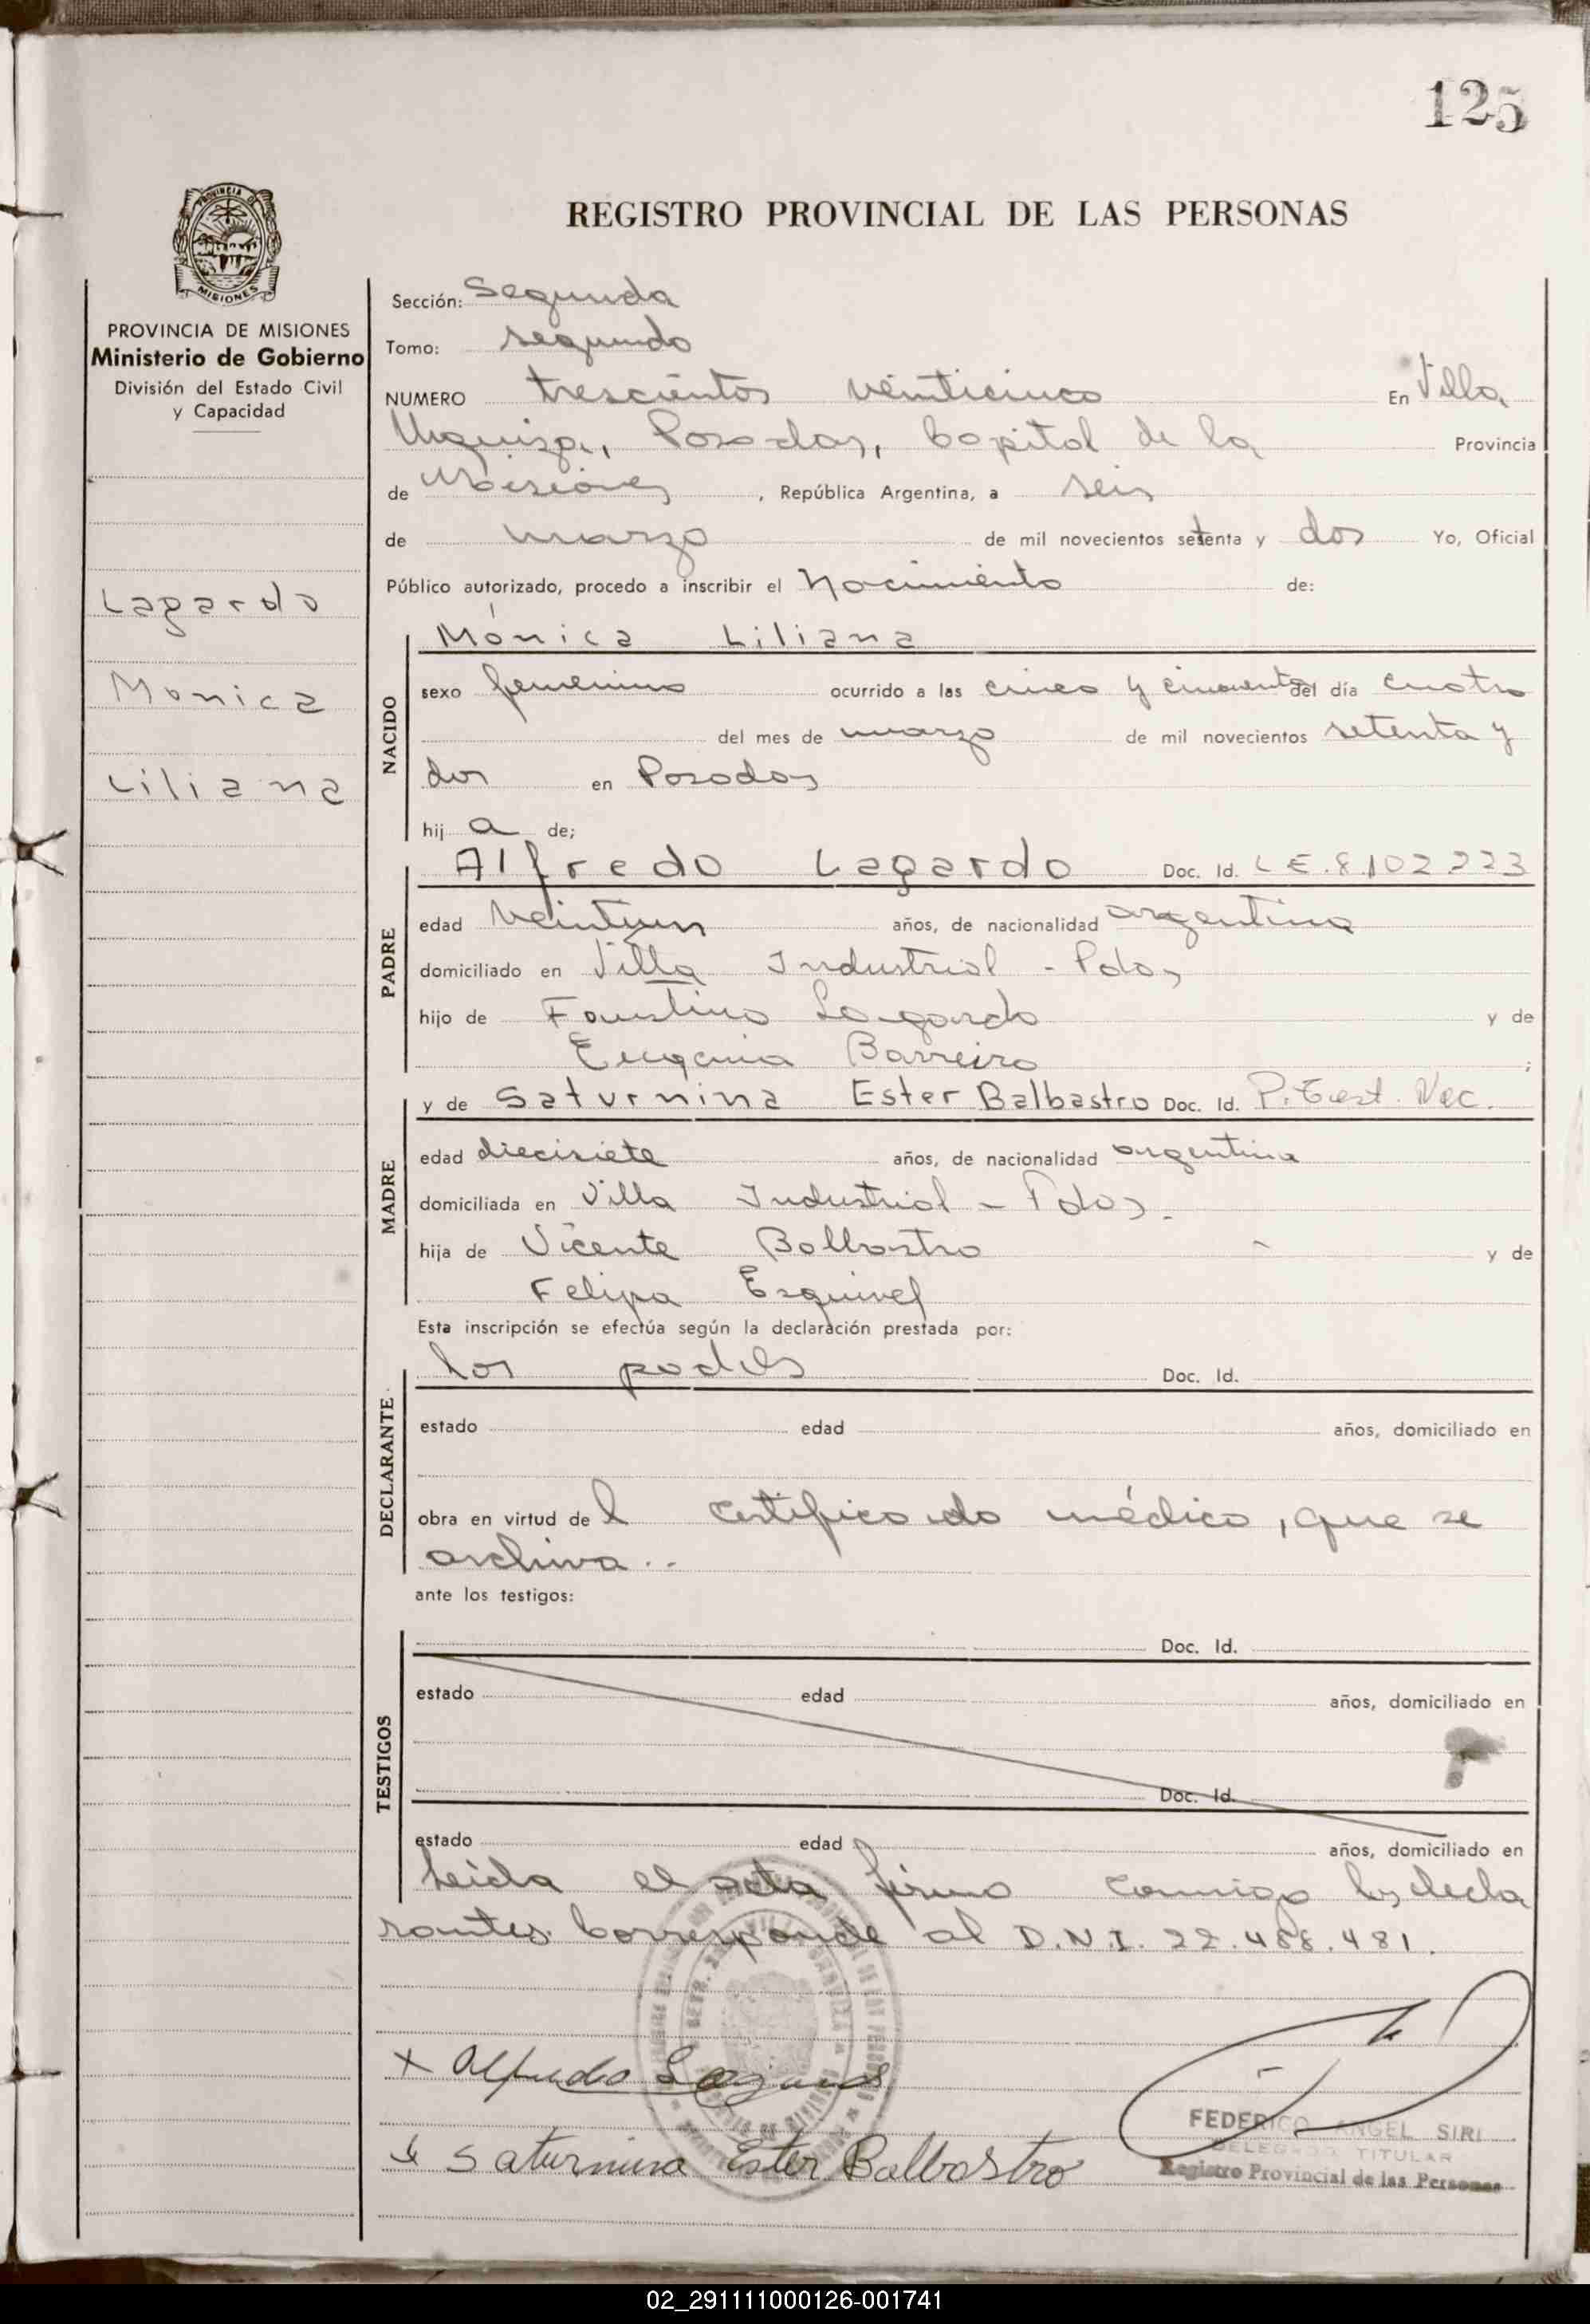 125
PROVINCIA DE MISIONES
REGISTRO PROVINCIAL DE LAS PERSONAS
PROVINCIA DE MISIONES
Ministerio de Gobierno
División del Estado Civil
y Capacidad
Lagardo
Monica
Liliana
Sección: Segunda
Tomo: segundo
NUMERO trescientos veinticinco En Villa
Urquiza, Posadas, Capital de la Provincia
de Misiones, República Argentina, a seis
de marzo de mil novecientos setenta y dos Yo, Oficial
Público autorizado, procedo a inscribir el Nacimiento de:
NACIDO
Mónica Liliana
sexo femenino ocurrido a las cinco y cincuenta del día cuatro
del mes de marzo de mil novecientos setenta y
dos en Posadas
hij a de;
PADRE
Alfredo Lagardo Doc. Id. L E. 8.102.223
edad veintiun años, de nacionalidad argentina
domiciliado en Villa Industrial - Pdas,
hijo de Faustino Lagardo y de
Eugenia Barreiro ;
MADRE
y de Saturnina Ester Balbastro Doc. Id. Nac.
edad diecisiete años, de nacionalidad argentina
domiciliada en Villa Industrial - Pdas.
hija de Vicente Balbastro y de
Felipa Esquivel
Esta inscripción se efectúa según la declaración prestada por:
DECLARANTE
los padres Doc. Id.
estado edad años, domiciliado en
obra en virtud de l certificado médico, que se
archiva..
ante los testigos:
TESTIGOS
Doc. Id.
estado edad años, domiciliado en
Doc. Id.
estado edad años, domiciliado en
Leida el acta firma conmigo los decla
rantes. Corresponde al D.N.I. 22.488.481.
x Alfredo Lagardo
x Saturnina Ester Balbastro
FEDERICO ANGEL SIRI
DELEGADO TITULAR
Registro Provincial de las Personas
02_291111000126-001741